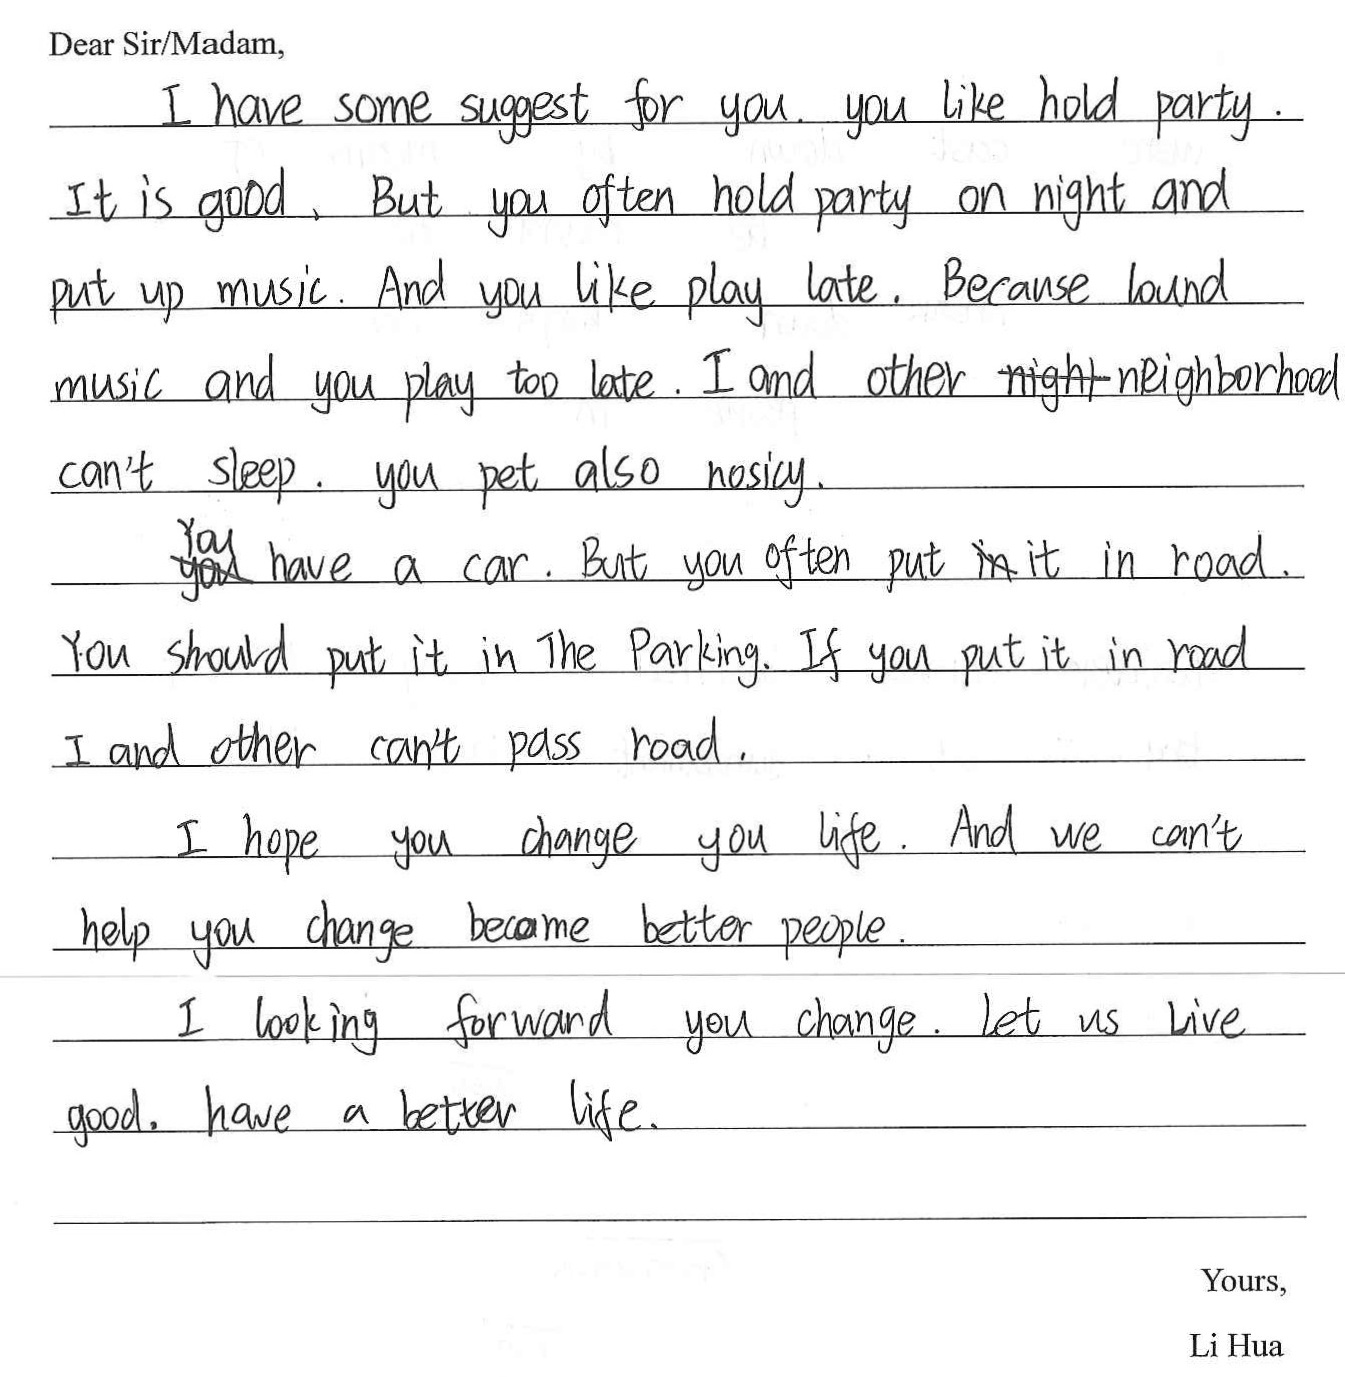 Dear Sir/Madam,
I have some suggest for you. you like hold party.
It is good. But you often hold party on night and
put up music. And you like play late. Because lound
music and you play too late. I and other night neighborhood
can't sleep. you pet also nosicy.
You
you have a car. But you often put in it in road.
You should put it in The Parking. If you put it in road
I and other can't pass road.
I hope you change you life. And we can't
help you change become better people.
I looking forward you change. Let us Live
good. have a better life.
Yours,
Li Hua